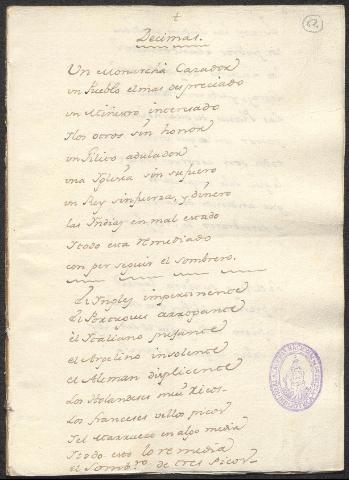 Decimas.
Un Monarcha Cazador
un Pueblo el mas despreciado
un Ministro interesado
Ylos otros sin honor
un Filico adulador
una Yglesia sin su fuero
un Rey sin fuerza, y dinero
las Yndias en mal estado
Ytodo esta remediado
con perseguir el sombrero.
El Yngles impertinente
el Portugues arrogante
el Ytaliano pujante
el Argelino insolente
el Aleman displicente
Los Holandeses mui ricos
Los franceses
Yel Marrueco en algo media
Ytodo esto lo remedia
el Sombro. de tres Picos